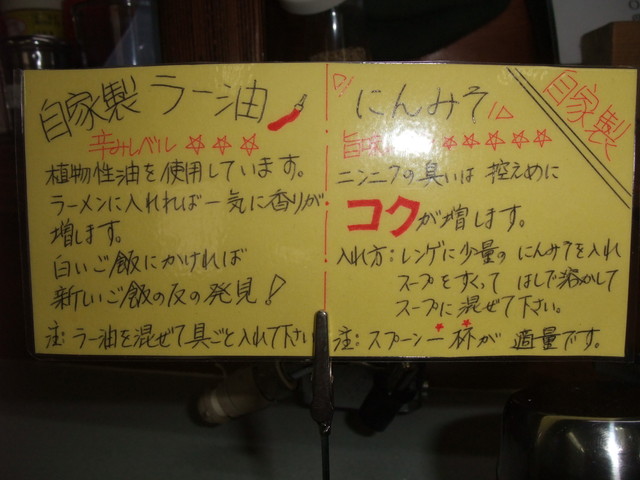 自家製 ラー油
辛みレベル ☆☆☆
植物性油を使用しています。
ラーメンに入れれば一気に香りが
増します。
白いご飯にかければ
新しいご飯の友の発見!
注:ラー油を混ぜて具ごと入れて下さい
にんみそ
自家製
旨味 ☆☆☆☆☆
ニンニクの臭いは控えめに
コクが増します。
入れ方:レンゲに少量のにんみそを入れ
スープをすくって はしで溶かして
スープに混ぜて下さい。
注:スプーン一杯が適量です。